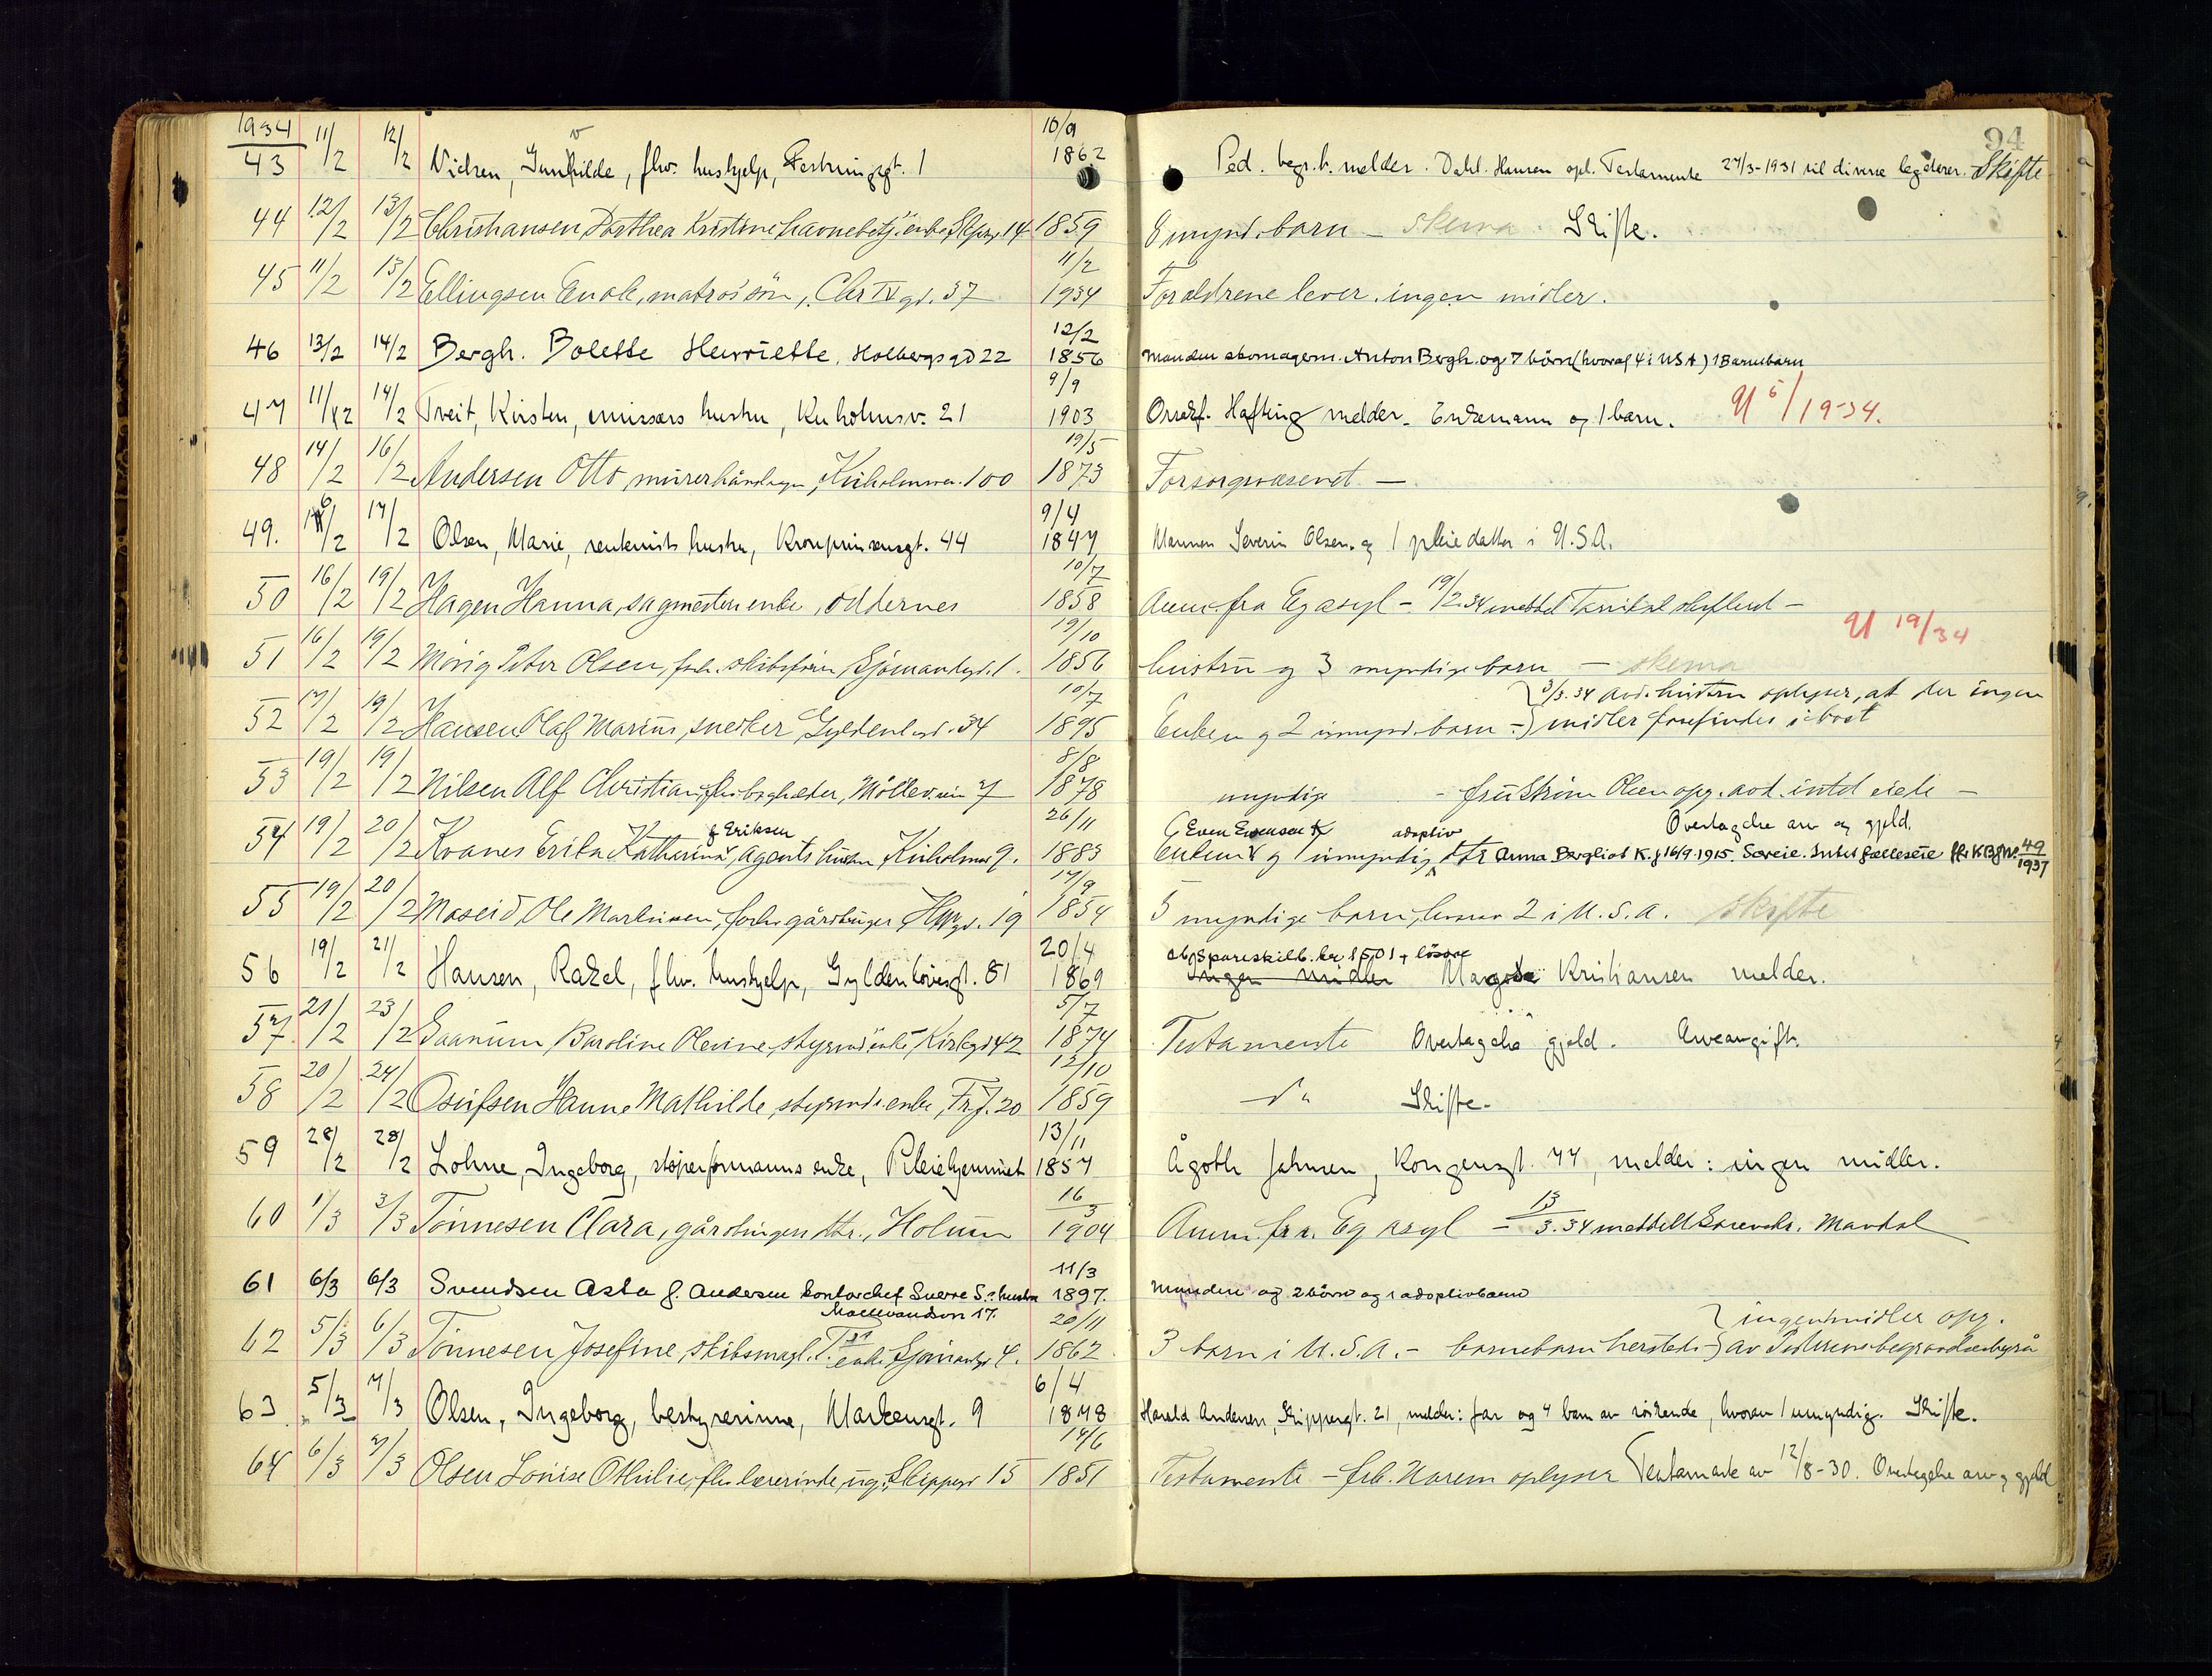 94
1934
43 11/2 12/2 Nielsen, Gunvilde, fhv. hushjelp, Festningsgt. 1 10/9 1862 Ped. begr.b. melder. Dahl. Hansen opl. Testamente 27/3-1931 til diverse legaterer. Skifte
44 12/2 13/2 Christiansen, Dorthea Kristine havnebetj. enke, Skipgt 14 1859 8 mynd. barn – skema Skifte.
45 11/2 13/2 Ellingsen Enok, matros sön, Chr IV gt. 37 11/2 1934 Foraldrene lever. ingen midler.
46 13/2 14/2 Bergh. Bolette Henriette, Holbergs gd 22 12/2 1856 Manden skomagerm. Anton Bergh. og 7 börn (hvoraf 4 i USA) 1 Barnebarn
47 11/2 14/2 Tveit, Kirsten, emissærs hustru, Kuholmsv. 21 9/9 1903 Hafting melder. Enkemann og 1 barn. U 5/1934.
48 14/2 16/2 Andersen Otto, murerhåndlanger, Kuholmsv. 100 19/5 1873 Forsorgsvæsenet –
49. 16/2 17/2 Olsen, Marie, rentenists hustru, Kronprinsensgt. 44 9/4 1847 Mannen Severin Olsen. og 1 pleiedatter i U.S.A.
50 16/2 19/2 Hagen Hanna, sagmesters enke, Oddernes 10/7 1858 Anm. fra Eg asyl – 19/2.34 meddelt
51 16/2 19/2 Mörig Peter Olsen, forh. skibsförer, Sjömandsgt. 1. 19/10 1856 hustru og 3 myndige barn – skema U 19/34
52 17/2 19/2 Hansen Olaf Marius, snedker Gyldenl. gt. 34 10/7 1895 Enken og 2 umynd. barn – 3/3.34 avd. hustru oplyser, at der ingen
midler forefindes i boet
53 19/2 19/2 Nilsen Alf Christian, fhv. bagholder, Möllevn 7 8/8 1878 myndige – fru Ström Olsen opg. avd. intet eiede –
54 19/2 20/2 Kvanes Erika Katharina f Eriksen, agents hustru Kuholmsv 9. 26/11 1883 Even Evensen K Enkem. og 1 umyndig adoptiv dtr Anna Bergliot K. f 16/9.1915. Særeie. Intet fælleseie Overtagelse arv og gjeld. 49/1937
55 19/2 20/2 Moseid Ole Martinsen, forh. gårdbruger, gt. 19 17/9 1854 5 myndige barn, hvorav 2 i U.S.A. skifte
56 19/2 21/2 Hansen, Rakel, fhv. hushjelp, Gyldenlövesgt. 81 20/4 1869 Spareskill. kr 1501 + lösöre Ingen midler Kristiansen melder.
57 21/2 23/2 Saanum, Karoline Olevine, styrmd. enke, Kirkegt 42 5/7 1874 Testamente Overtagelse gjeld. Arveavgift.
58 20/2 24/2 Osufsen Hanne Mathilde, styrmds. enke, Frgt. 20 12/10 1859 do Skifte.
59 28/2 28/2 Lohne, Ingeborg, støperformanns enke, Pleiehjemmet 13/11 1857 Ågoth Johnsen, Kongensgt. 44, melder: ingen midler.
60 1/3 3/3 Tönnesen Clara, gårdbrugers dtr., Holum 16/3 1904 Anm. fra Eg asyl – 13/3.34 meddelt Sorenskr. Mandal
61 6/3 6/3 Svendsen Asta f. Andersen kontorchef Sverre S.s hustru Möllevandsv 17. 11/3 1897. Manden og 2 börn og 1 adoptivbarn
62 5/3 6/3 Tönnesen Josefine, skibsmægl. enke, Sjömandsgt 4. 20/11 1862 3 barn i U.S.A. – barnebarn hersteds – ingen midler opg.
av Pedersens begravelsesbyrå
63 5/3 7/3 Olsen, Ingeborg, bestyrerinne, Markensgt. 9 6/4 1878 Harald Andersen, Skippergt. 21, melder: far og 4 barn av søskende, hvorav 1 umyndig. Skifte.
64 6/3 7/3 Olsen Lovise Othilie, fhv. lærerinde, ug., Skippergt 15 14/6 1851 Testamente – frk. Norem oplyser Testamente av 12/8-30. Overtagelse arv og gjeld